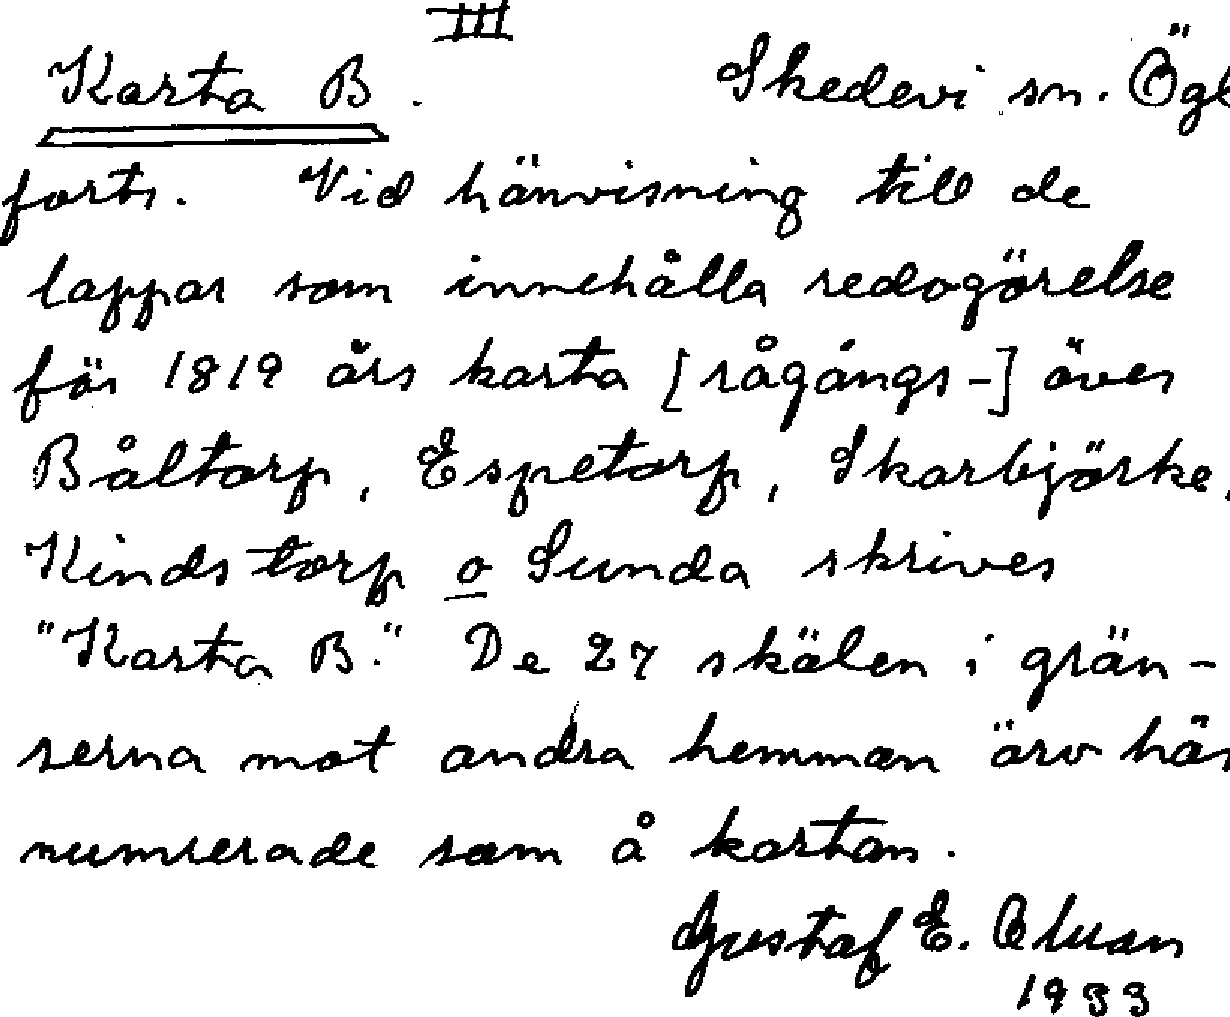 III
Karta B. Skedevi sn. Ögl
forts. Vid hänvisning till de
lappar som innehålla redogörelse
för 1819 års karta [rågångs-] över
Båltorp, Espetorp, Skarbjörke,
Kindstorp o Sunda skrives
"Karta B." De 27 skälen i grän-
serna mot andra hemman äro här
numrerade som å kartan.
Gustaf E.
1933